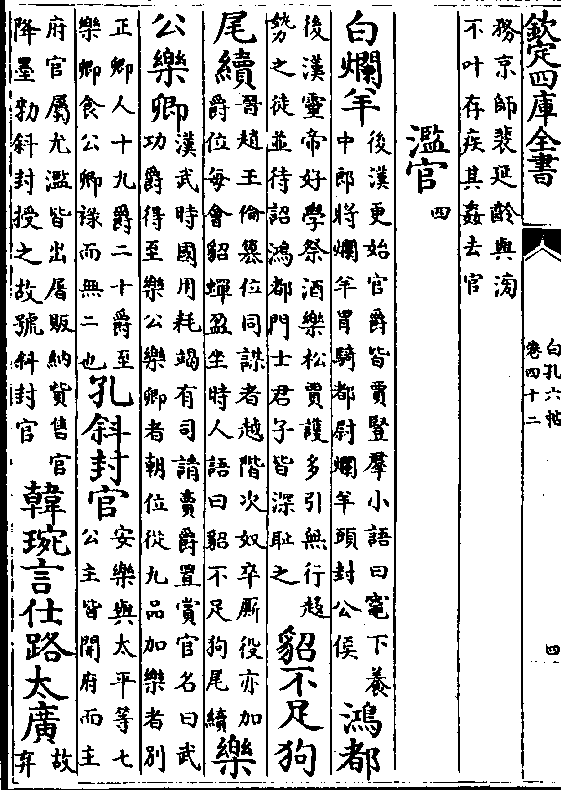 欽定四庫全書
白孔六帖
卷四十二
四
務京師裴延齡與洵
不叶存疾其姦去官
濫官四
白爛羊後漢更始官爵皆賈豎羣小語曰竈下養
中郎將爛羊胃騎都尉爛羊頭封公侯鴻都
後漢靈帝好學祭酒樂松賈護多引無行趨
勢之徒並待詔鴻都門士君子皆深恥之貂不足狗
尾續晉趙王倫篡位同謀者越階次奴卒厮役亦加
爵位每會貂蟬盈坐時人語曰貂不足狗尾續樂
公樂卿漢武時國用耗竭有司請賣爵置賞官名曰武
功爵得至樂公樂卿者朝位從九品加樂者別
正卿人十九爵二十爵至
樂卿食公卿祿而無二也孔斜封官安樂與太平等七
公主皆開府而主
府官屬尤濫皆出屠販納貲售官
降墨勅斜封授之故號斜封官韓琬言仕路太廣故
弃